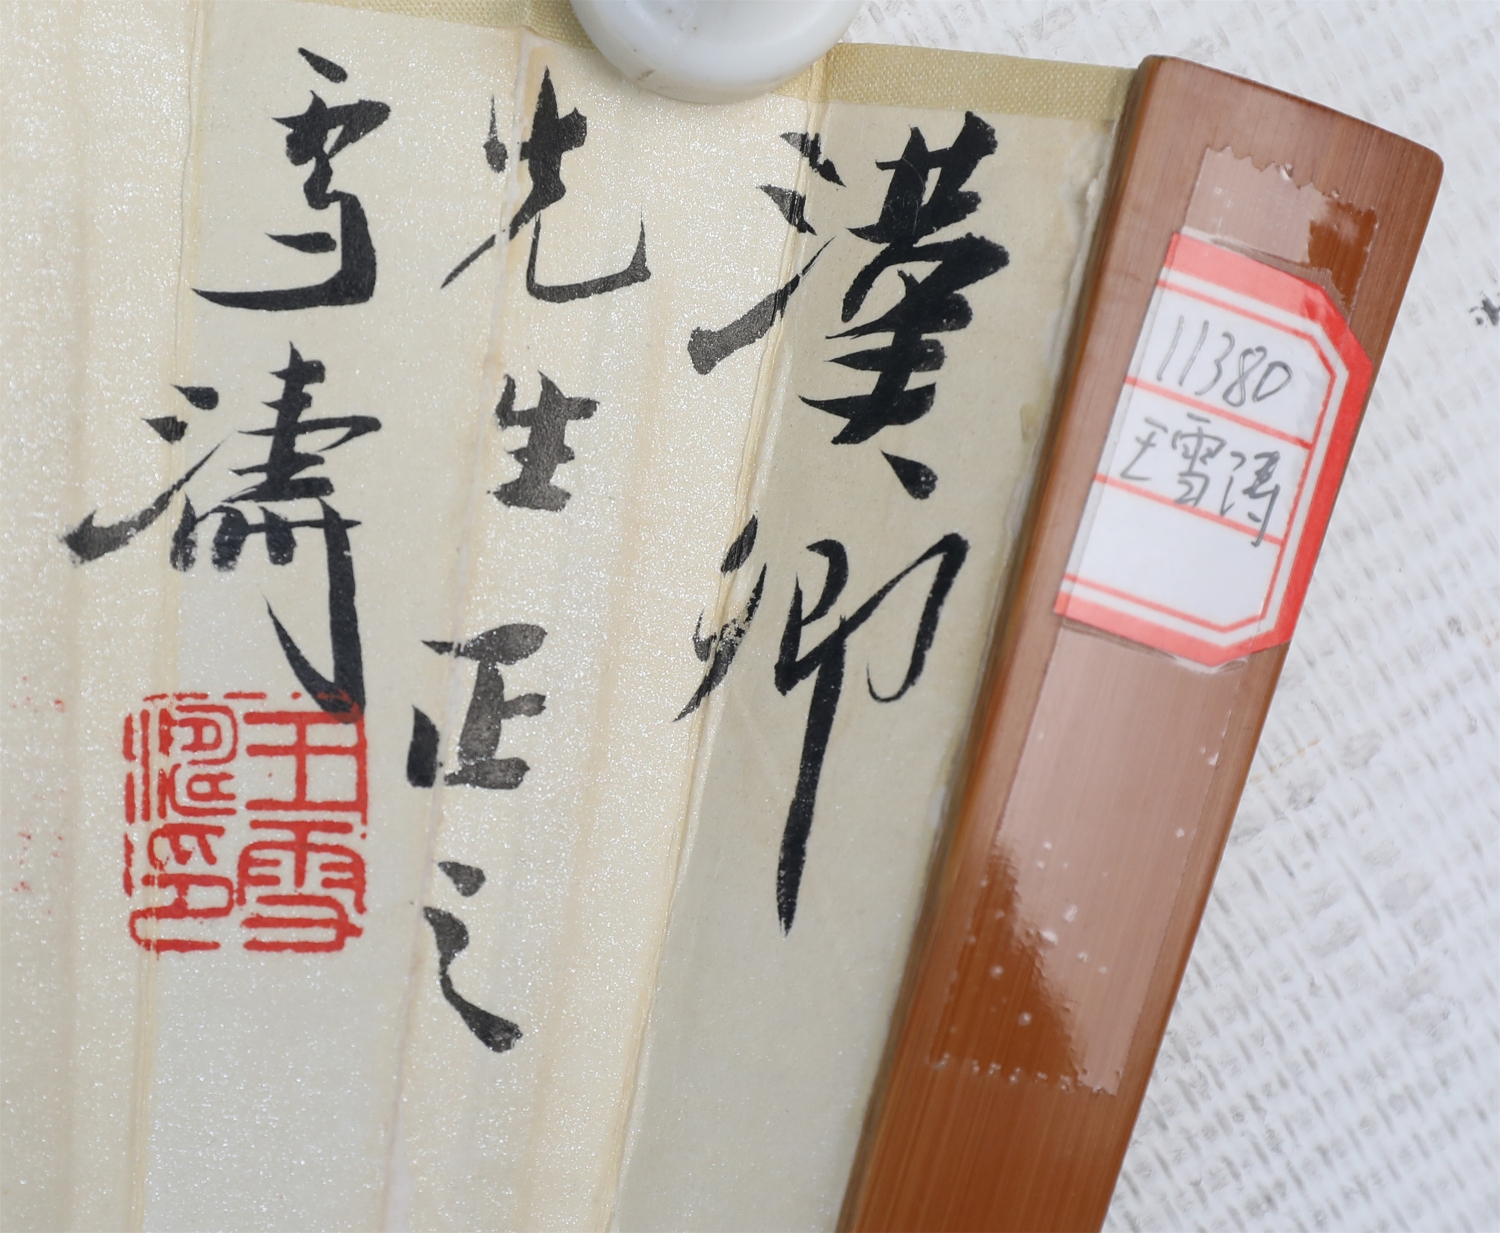 漢卿
先生正之
雪濤
王雪
濤印
11380
王雪涛